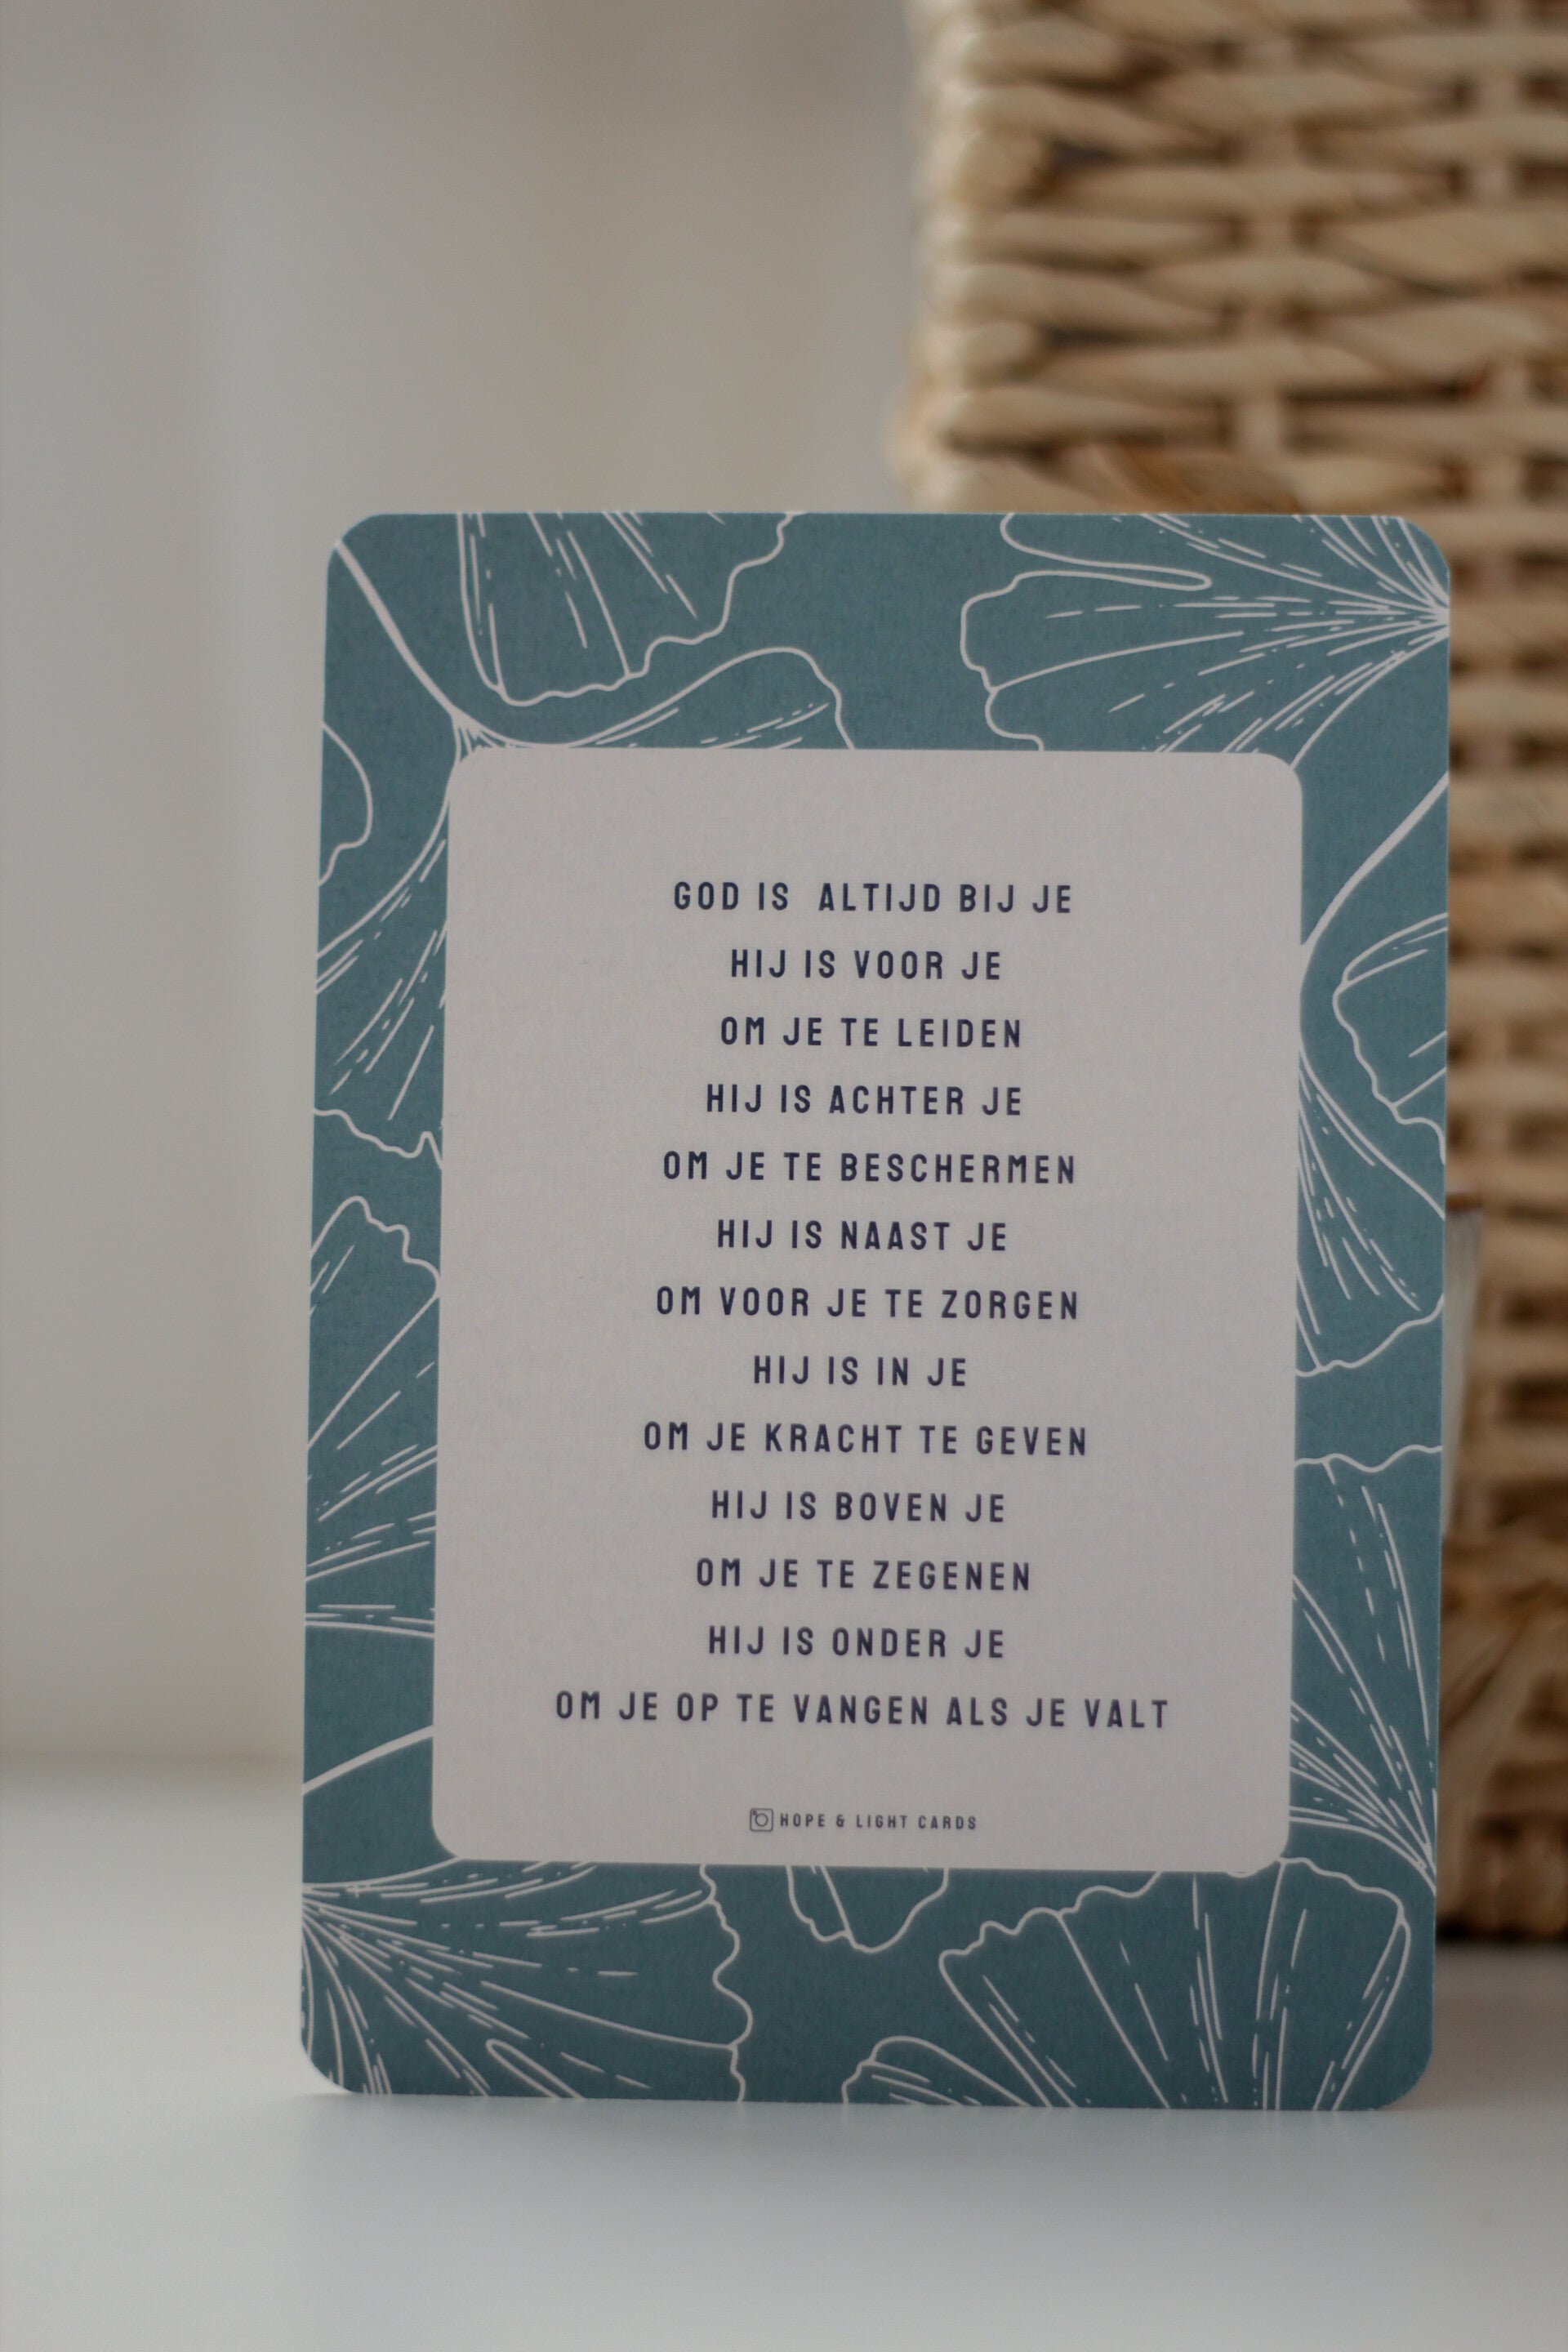 GOD IS ALTIJD BIJ JE
HIJ IS VOOR JE
OM JE TE LEIDEN
HIJ IS ACHTER JE
OM JE TE BESCHERMEN
HIJ IS NAAST JE
OM VOOR JE TE ZORGEN
HIJ IS IN JE
OM JE KRACHT TE GEVEN
HIJ IS BOVEN JE
OM JE TE ZEGENEN
HIJ IS ONDER JE
OM JE OP TE VANGEN ALS JE VALT
HOPE & LIGHT CARDS